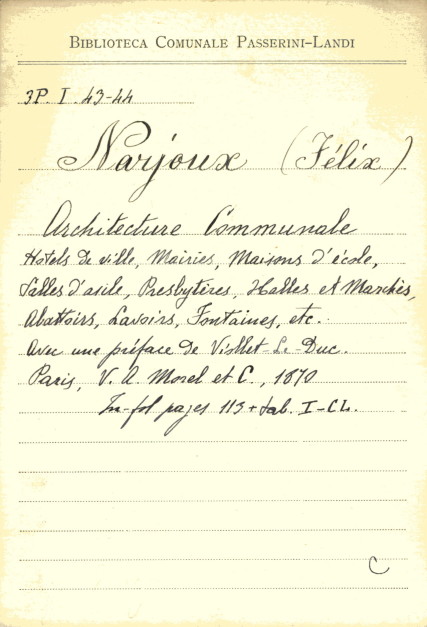 BIBLIOTECA COMUNALE PASSERINI-LANDI
3P. I. 43-44
Narjoux (Félix)
Architecture Communale
Hotels de ville, Mairies, Maisons d'école,
Salles d'asile, Presbytères, Halles et Marchés,
Abattoirs, Lavoirs, Fontaines, etc.
Avec une préface de Viollet-Le-Duc.
Paris, V. A. Morel et C., 1870
In-fol pages 113 + tab. I-CL.
C